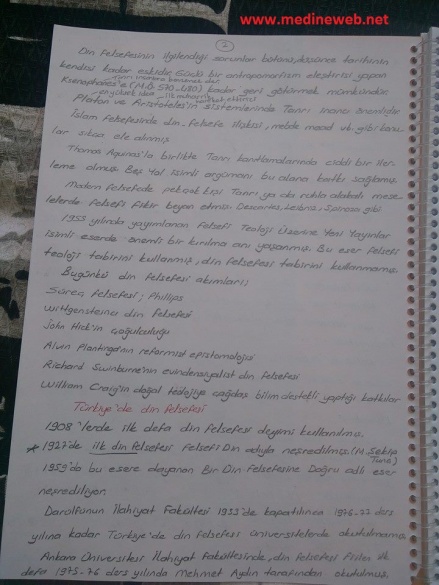 www.medineweb.net
2
Din felsefesinin ilgilendiği sorunlar bütünü, düşünce tarihinin
kendisi kadar eskidir. Güçlü bir antropomorfizm eleştirisi yapan
Tanrı insana benzemek
Ksenophanes'e (M.Ö. 570-480) kadar geri götürmek mümkündür.
Platon ve Aristoteles'in sistemlerinde Tanrı inancı önemlidir
İslam Felsefesinde din-felsefe ilişkisi, mebde maad vb. gibi konu-
lar sıkça ele alınmış
Thomas Aquinas'la birlikte Tanrı kanıtlamalarında ciddi bir iler-
leme olmuş. Beş Yol isimli argümanı bu alana katkı sağlamış.
Modern felsefede pek çok kişi Tanrı ya da ruhla alakalı mese-
lelerde felsefi fikir beyan etmiş. Descartes, Leibniz, Spinoza gibi
1955 yılında yayımlanan Felsefi Teoloji Üzerine Yeni Yayınlar
isimli eserde önemli bir kırılma anı yaşanmış. Bu eser felsefi
teoloji tabirini kullanmış, din felsefesi tabirini kullanmamış.
Bugünkü din felsefesi akımları;
Süreç felsefesi; Phillips
Wittgensteincı din felsefesi
John Hick'in çoğulculuğu
Alvin Plantinga'nın reformist epistemolojisi
Richard Swinburne'nin evidensiyalist din felsefesi
William Craig'in doğal teolojiye çağdaş bilim destekli yaptığı katkılar
Türkiye'de din felsefesi
1908'lerde ilk defa din felsefesi deyimi kullanılmış.
* 1927'de ilk din felsefesi Felsefe-i Din adıyla neşredilmiş. (M. Şekip Tunç)
1959'da bu esere dayanan Bir Din Felsefesine Doğru adlı eser
neşrediliyor.
Darülfünun İlahiyat Fakültesi 1933'de kapatılınca 1976-77 ders
yılına kadar Türkiye'de din felsefesi üniversitelerde okutulmamış.
Ankara Üniversitesi İlahiyat Fakültesinde, din felsefesi ilk
defa 1975-76 ders yılında Mehmet Aydın tarafından okutulmuş.